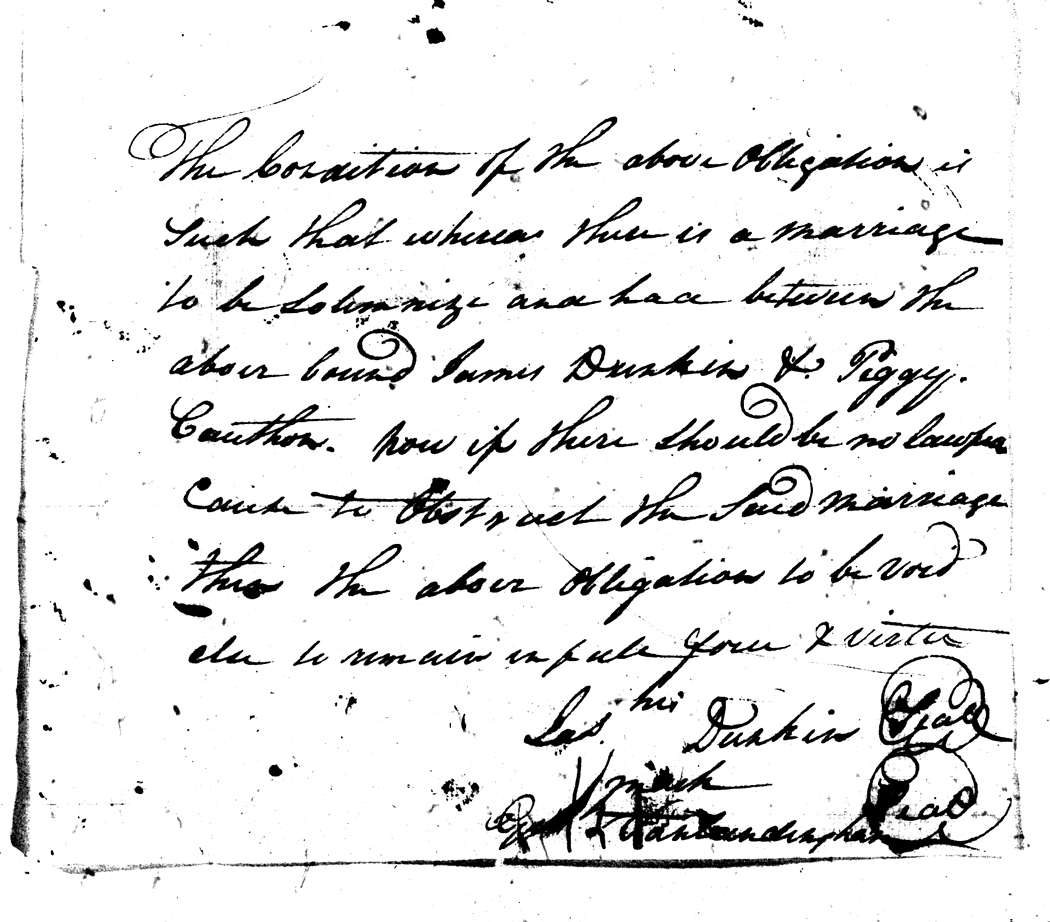 The Condition of the above Obligation is
Such that whereas there is a marriage
to be Solemnize and had between the
above bound James Dunkin & Peggy.
Cauthon. now if there should be no lawfull
Cause to Obstruct the Said marriage
then the above Obligation to be void
else to remain in full force & virtue
his
Jas. Dunkin Seal
mark
Vanlandingham Seal